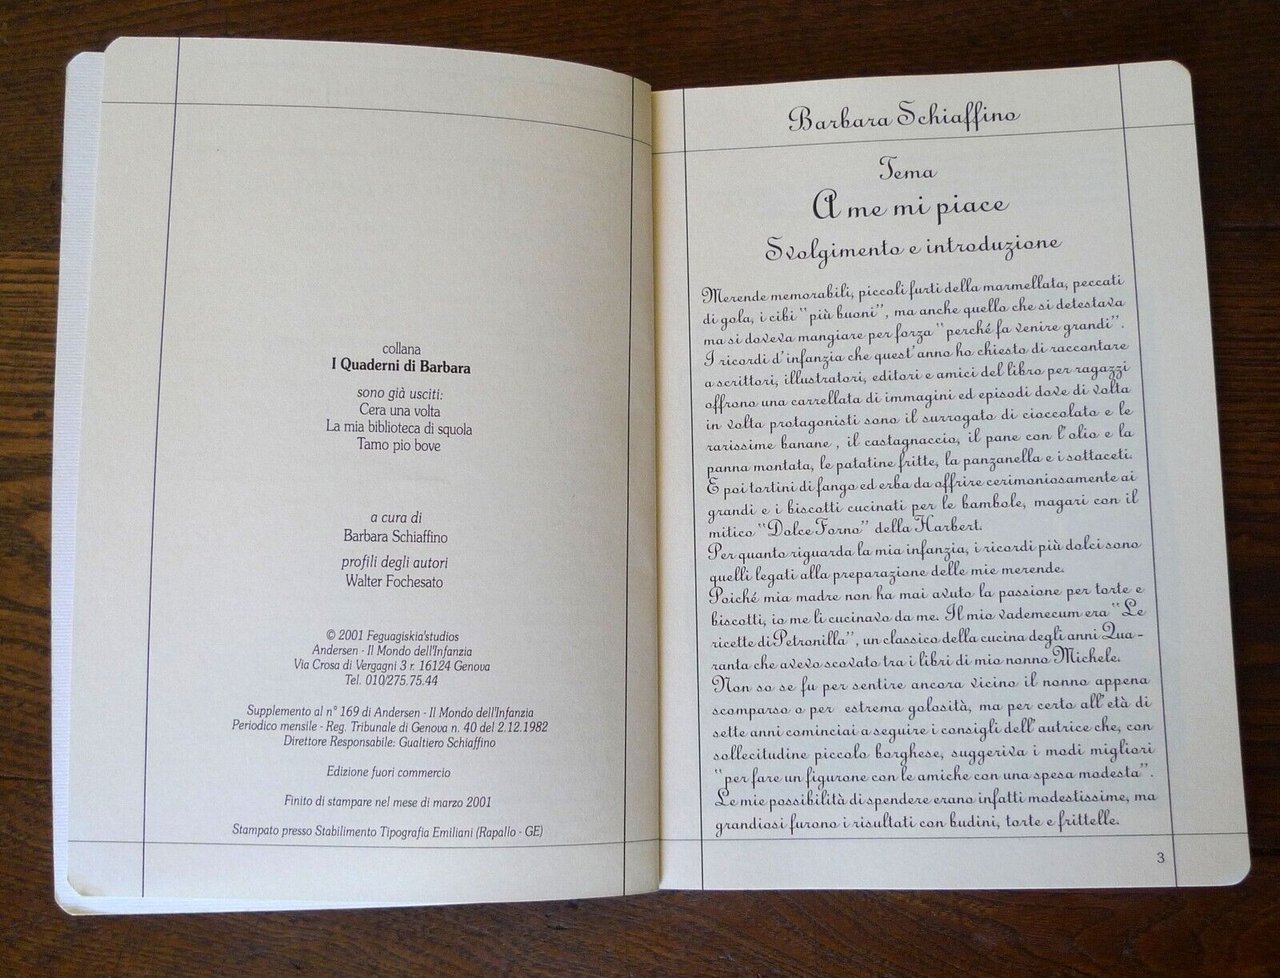 collana
I Quaderni di Barbara
sono già usciti:
Cera una volta
La mia biblioteca di squola
Tamo pio bove
a cura di
Barbara Schiaffino
profili degli autori
Walter Fochesato
© 2001 Feguagiskia'studios
Andersen - Il Mondo dell'Infanzia
Via Crosa di Vergagni 3 r. 16124 Genova
Tel. 010/275.75.44
Supplemento al n° 169 di Andersen - Il Mondo dell'Infanzia
Periodico mensile - Reg. Tribunale di Genova n. 40 del 2.12.1982
Direttore Responsabile: Gualtiero Schiaffino
Edizione fuori commercio
Finito di stampare nel mese di marzo 2001
Stampato presso Stabilimento Tipografia Emiliani (Rapallo - GE)
Barbara Schiaffino
Tema
A me mi piace
Svolgimento e introduzione
Merende memorabili, piccoli furti della marmellata, peccati
di gola, i cibi "più buoni", ma anche quello che si detestava
ma si doveva mangiare per forza "perché fa venire grandi".
I ricordi d'infanzia che quest'anno ho chiesto di raccontare
a scrittori, illustratori, editori e amici del libro per ragazzi
offrono una carrellata di immagini ed episodi dove di volta
in volta protagonisti sono il surrogato di cioccolato e le
rarissime banane , il castagnaccio, il pane con l'olio e la
panna montata, le patatine fritte, la panzanella e i sottaceti.
E poi tortini di fango ed erba da offrire cerimoniosamente ai
grandi e i biscotti cucinati per le bambole, magari con il
mitico "Dolce Forno" della Harbert.
Per quanto riguarda la mia infanzia, i ricordi più dolci sono
quelli legati alla preparazione delle mie merende.
Poiché mia madre non ha mai avuto la passione per torte e
biscotti, io me li cucinavo da me. Il mio vademecum era "Le
ricette di Petronilla", un classico della cucina degli anni Qua-
ranta che avevo scovato tra i libri di mio nonno Michele.
Non so se fu per sentire ancora vicino il nonno appena
scomparso o per estrema golosità, ma per certo all'età di
sette anni cominciai a seguire i consigli dell'autrice che, con
sollecitudine piccolo borghese, suggeriva i modi migliori
"per fare un figurone con le amiche con una spesa modesta".
Le mie possibilità di spendere erano infatti modestissime, ma
grandiosi furono i risultati con budini, torte e frittelle.
3